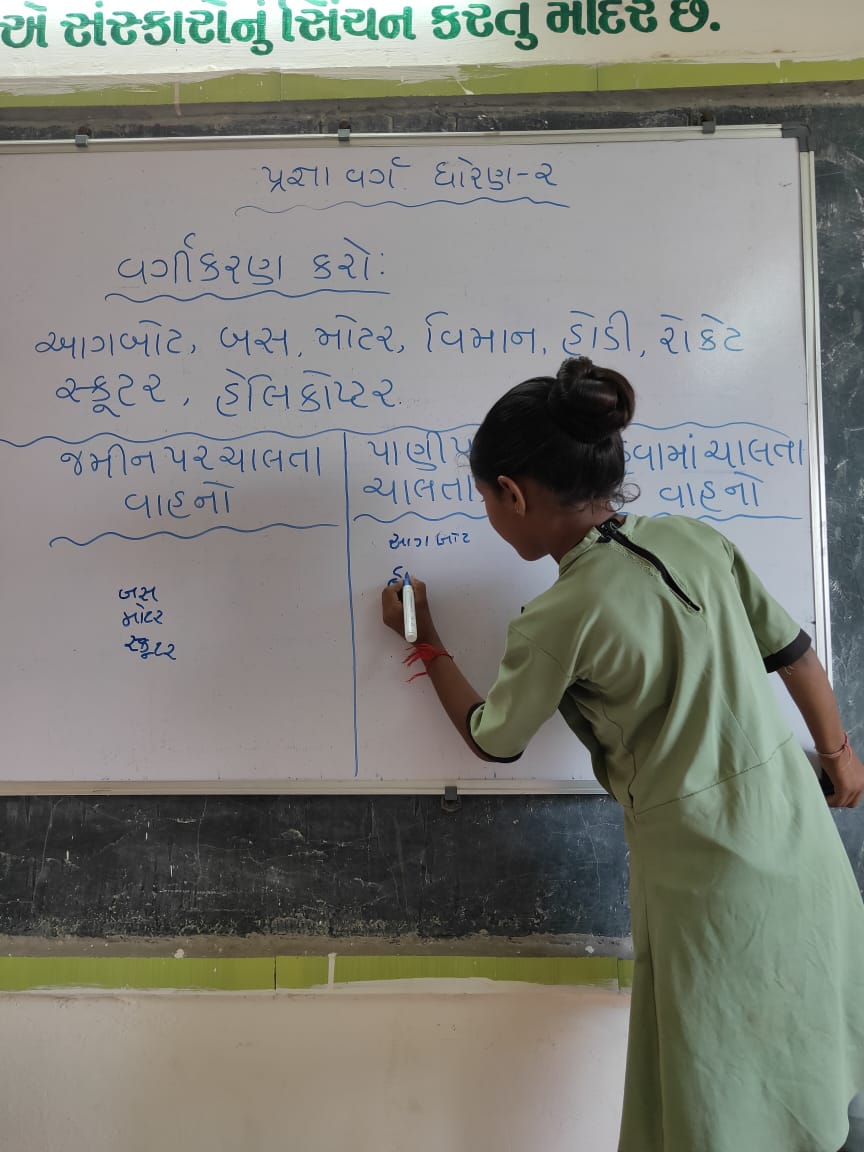 એ સંસ્કારોનું સિંચન કરતુ મંદિર છે.
પ્રજ્ઞા વર્ગ ધોરણ-૨
વર્ગીકરણ કરો:
આગબોટ, બસ, મોટર, વિમાન, હોડી, રોકેટ
સ્કૂટર, હેલિકોપ્ટર.
જમીન પર ચાલતા
વાહનો
પાણી
ચાલતા
હવામાં ચાલતા
વાહનો
બસ
મોટર
સ્કૂટર
આગબોટ